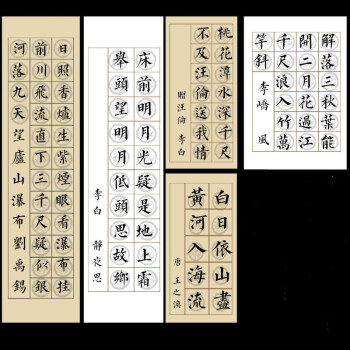 解落三秋葉能
開二月花過江
千尺浪入竹萬
竿斜 李嶠 風
桃花潭水深千尺
不及汪倫送我情
贈汪倫 李白
白日依山盡
黃河入海流
唐 王之渙
床前明月光疑是地上霜
舉頭望明月低頭思故鄉
李白 靜夜思
日照香爐生紫煙眼看瀑布挂
前川飛流直下三千尺疑似銀
河落九天望廬山瀑布劉禹錫